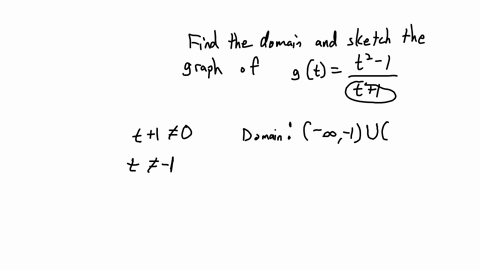 Find the domain and sketch the
graph of g(t) = t²-1 / t+1
t+1 ≠ 0 Domain: (-∞,-1)∪(
t ≠ -1